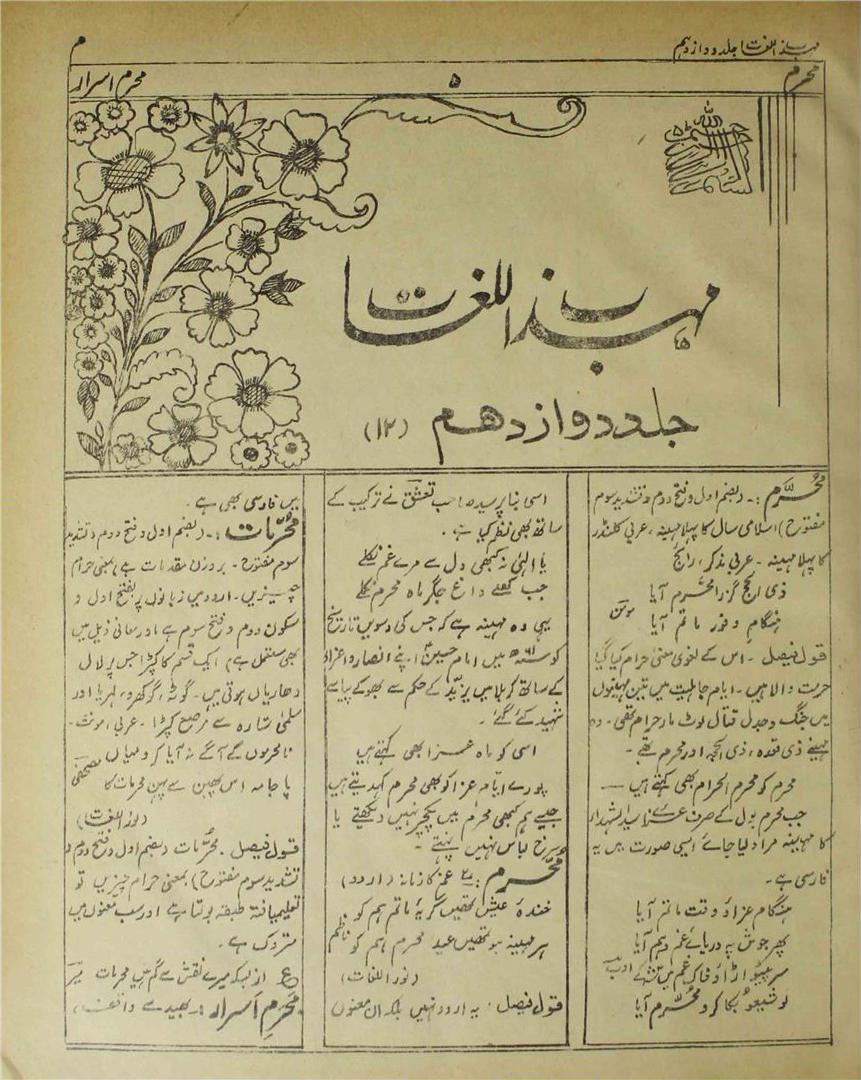 مہذب اللغات جلد دوازدہم
م
محرم
۵
محرم اسرار
مہذب اللغات
جلد دوازدھم (۱۲)
مُحرَّم :۔ (بضم اول و فتح دوم و تشدید سوم
مفتوح) اسلامی سال کا پہلا مہینہ، عربی کلنڈر
کا پہلا مہینہ ۔ عربی مذکر، رائج
ذی الحج گزرا محرّم آیا
ہنگامِ وفورِ ماتم آیا مومن
قول فیصل ۔ اس کے لغوی معنی حرام کیا گیا
حرمت والا ہیں۔ ایام جاہلیت میں تین مہینوں
میں جنگ و جدل قتال لوٹ مار حرام تھی ۔ وہ
مہینے ذی قعدہ، ذی الحجہ اور محرم تھے ۔
محرم کو محرم الحرام بھی کہتے ہیں ۔
جب محرم بول کے صرف عزائے سیدالشہداء
کا مہینہ مراد لیا جائے ایسی صورت میں یہ
فارسی ہے ۔
ہنگام عزا و وقت ماتم آیا
پھر جوش پہ دریائے غم و ہم آیا
سر پیٹو اڑاؤ خاک غم میں شہ کے ادب
لو شیعو بکا کرو محرّم آیا
اسی بنا پر سید صاحب تعشق نے ترکیب کے
ساتھ بھی نظم کیا ہے ۔
یا الٰہی نہ کبھی دل سے مرے غم نکلے
جب گھٹے داغ جگر ماہ محرم نکلے
یہی وہ مہینہ ہے کہ جس کی دسویں تاریخ
کو سنہ ۶۱ھ میں امام حسینؑ اپنے انصار و اعزاء
کے ساتھ کربلا میں یزید کے حکم سے بھوکے پیاسے
شہید کئے گئے ۔
اسی کو ماہ عزا بھی کہتے ہیں
پورے ایام عزا کو بھی محرم کہہ دیتے ہیں
جیسے ہم کبھی محرم میں پکچر نہیں دیکھتے یا
سرخ لباس نہیں پہنتے ۔
محرم :۔ غم کا زمانہ (اردو)
خندۂ عیش تمھیں گریۂ ماتم ہم کو
ہر مہینہ ہو تمھیں عید محرم ہم کو ناظم
(نور اللغات)
قول فیصل ۔ یہ اردو نہیں بلکہ ان معنوں
میں فارسی بھی ہے ۔
محرّمات :۔ (بضم اول و فتح دوم و تشدید
سوم مفتوح ۔ بروزن مقدمات ہے) بمعنی حرام
چیزیں ۔ اردو میں زبانوں پر بفتح اول و
سکون دوم و فتح سوم ہے اور معانی ذیل میں
بھی مستعمل ہے) ایک قسم کا کپڑا جس پر لال
دھاریاں ہوتی ہیں ۔ گوٹہ، گوکھرو، لہریا اور
سلمیٰ ستارہ سے مرصع کپڑا ۔ عربی، مونث ۔
نامحرموں کے آگے نہ آیا کرو میاں
پاجامہ اس پھبن سے پہن محرمات کا مصحفی
(نور اللغات)
قول فیصل ۔ محرّمات (بضم اول و فتح دوم و
تشدید سوم مفتوح) بمعنی حرام چیزیں تو
تعلیم یافتہ طبقہ بولتا ہے اور سب معنوں میں
متروک ہے ۔
ع از بسکہ میرے نقش سے گم ہیں محرمات میر
محرم اسرار :۔ بھید سے واقف،